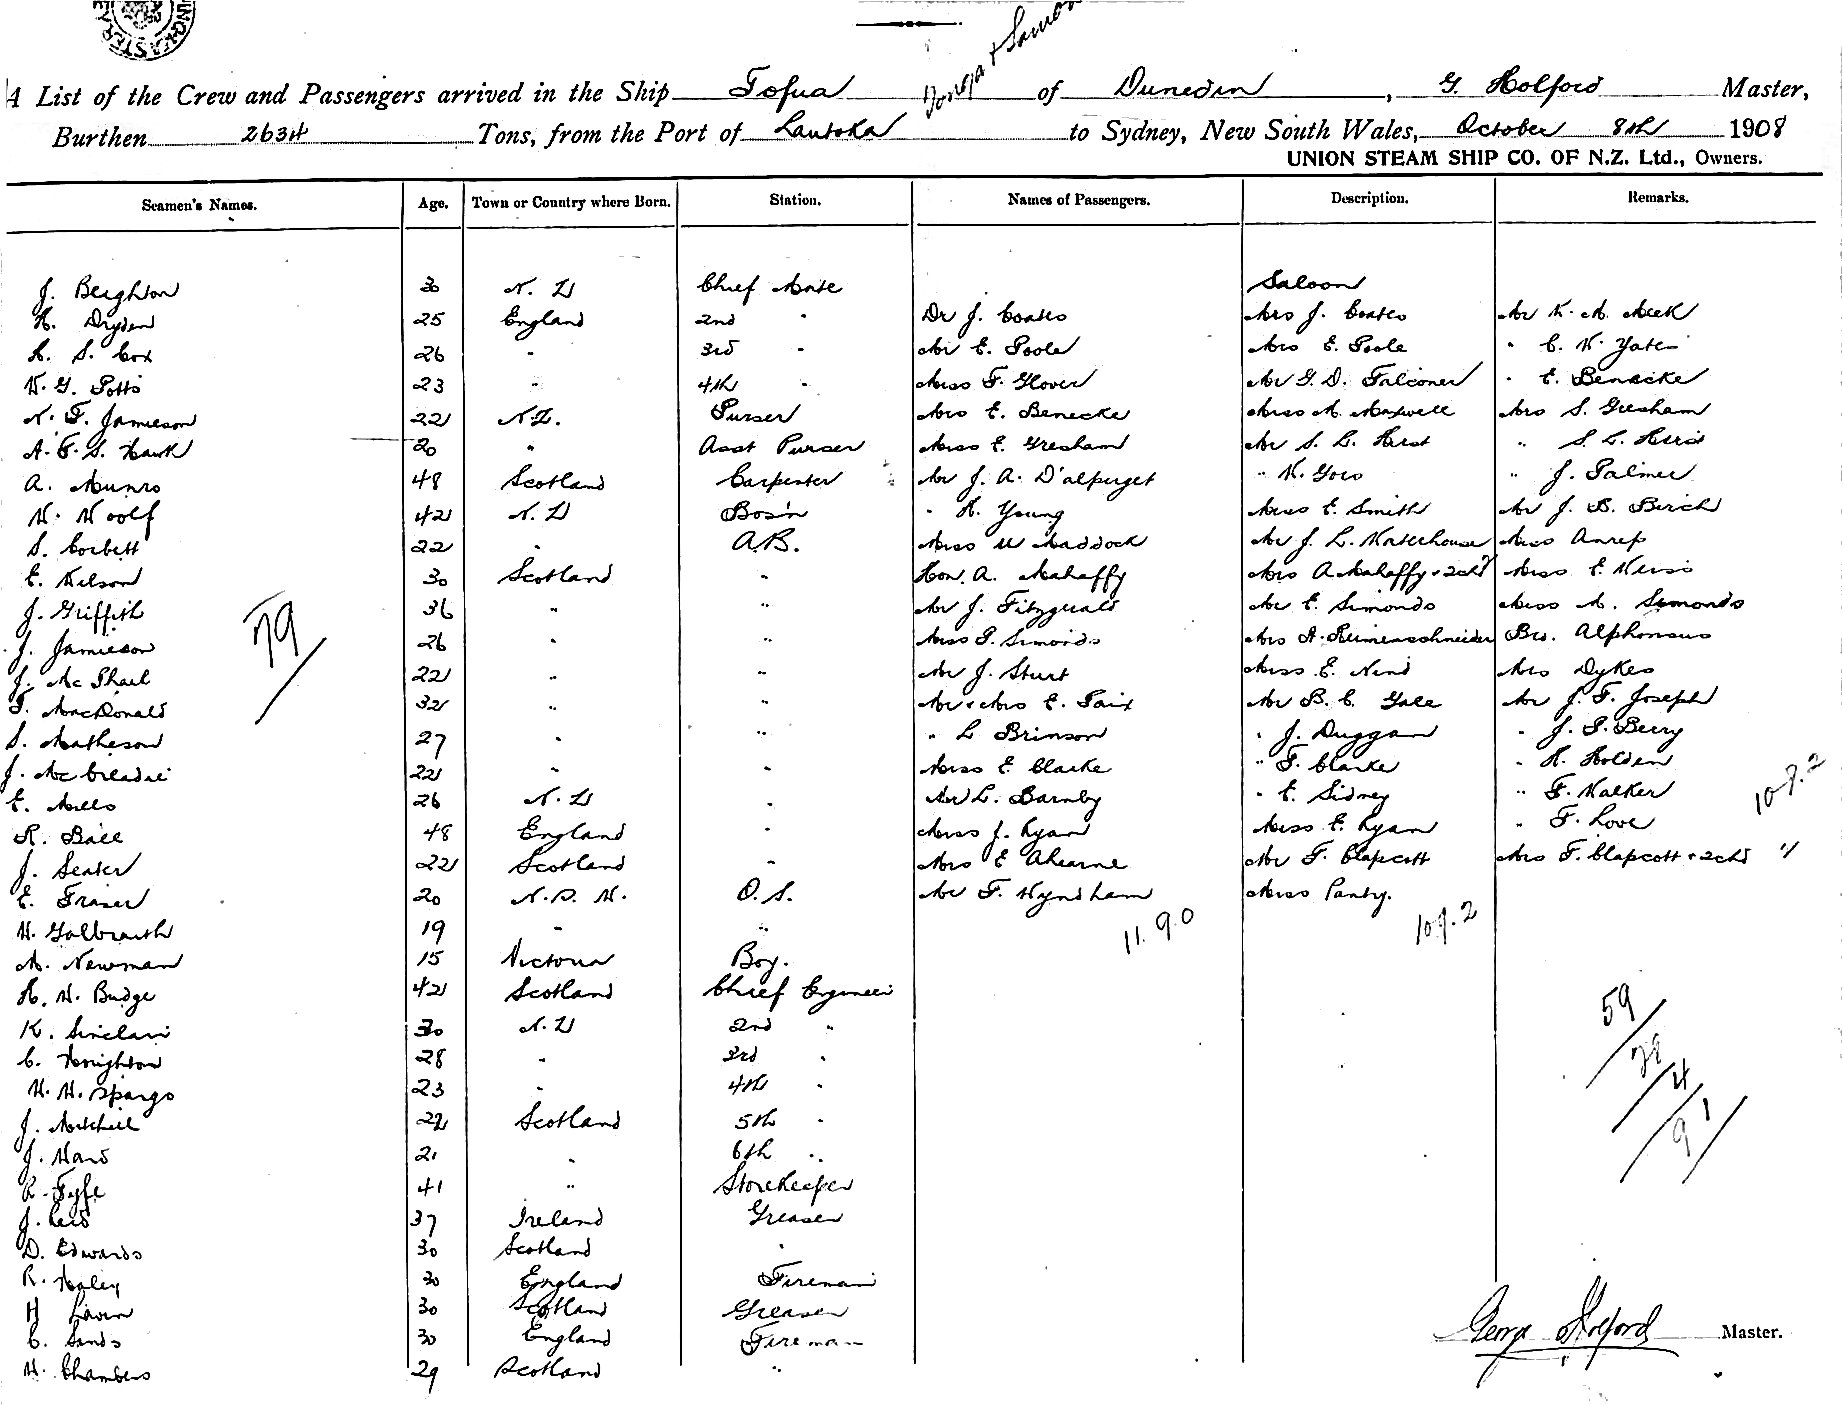 Tonga & Samoa
A List of the Crew and Passengers arrived in the Ship Tofua of Dunedin, G. Holford Master,
Burthen 2634 Tons, from the Port of Lautoka to Sydney, New South Wales, October 8th 1908
UNION STEAM SHIP CO. OF N.Z. Ltd., Owners.
Seamen's Names. Age. Town or Country where Born. Station. Names of Passengers. Description. Remarks.
J. Beighton 30 N. Z Chief Mate Saloon
H. Dryden 25 England 2nd " Dr J. Coates Mrs J. Coates Mr W. M. Meek
H. S. Cox 26 " 3rd " Mr E. Poole Mrs E. Poole " C. W. Yates
W. G. Potts 23 " 4th " Miss F. Glover Mr G. D. Falconer " E. Benecke
N. F. Jamieson 22 N.Z. Purser Mrs E. Benecke Miss M. Maxwell Mrs S. Gresham
A. F. S. Hawk 20 " Asst Purser Miss E. Gresham Mr S. L. Herst "  S. L.
A. Munro 48 Scotland Carpenter Mr J. A. D'alpuget " W. " J. Palmer
W. Woolf 42 N. Z Bos'n " H. Young Miss E. Smith Mr J. B. Birch
S. Corbett 22 " A.B. Miss M Maddock Mr J. L. Waterhouse Miss Anrep
E. Wilson 30 Scotland " Hon. A. Mahaffy Mrs A Mahaffy & 2chd Miss E.
J. Griffith 36 " " Mr J. Fitzgerald Mr E. Simonds Miss M. Simonds
J. Jamieson 26 " " Miss P. Simonds Mrs A. Riemenschneider Bro. Alphonsus
J. McPhail 22 " " Mr J. Sturt Miss E. Nind Mrs Dykes
F. MacDonald 32 " " Mr & Mrs E. Fair Mr B. C. Gale Mr J. F. Joseph
S. Matheson 27 " " " L. Brinson " J. Duggan " J. P. Berry
J. McCreadie 22 " " Miss E Clarke " F. Clarke " H. Holden
E. Mills 26 N. Z " Mr L. Barnby " E. Sidney " F. Walker
R. Ball 48 England " Miss J. Ryan Miss E. Ryan " F. Love
J. Seater 22 Scotland " Mrs E Ahearne Mr F. Clapcott Mrs F. Clapcott & 2chd
E. Fraser 20 N. S. W. O. S. Mr F. Wyndham Miss Panty.
W. Galbraith 19 " "
M. Newman 15 Victoria Boy.
H. W. Budge 42 Scotland Chief Engineer
K. Sinclair 30 N. Z 2nd "
C. Knighton 28 " 3rd "
W. H. Spargo 23 " 4th "
J. Mitchell 22 Scotland 5th "
J. Ward 21 " 6th "
R. Fyfe 41 " Storekeeper
J. Reid 37 Ireland Greaser
D. Edwards 30 Scotland "
R. Haley 30 England Fireman
H Lavin 30 Scotland Greaser
C. Sands 30 England Fireman
W. Chambers 29 Scotland "
79
11. 9. 0
10. 9. 2
10. 9. 2
59
4
91
George Holford Master.